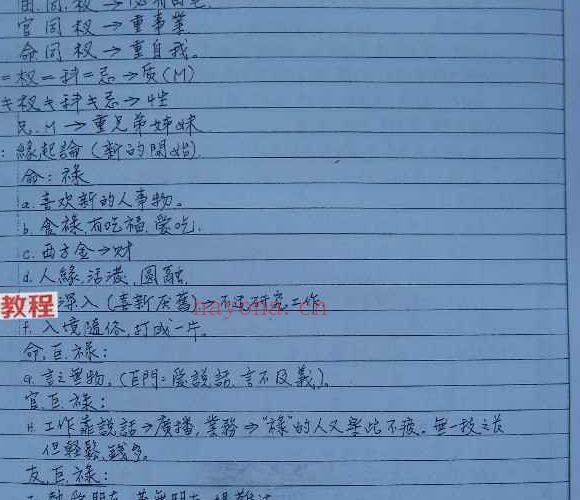 官同权→重事業
命同权→重自我。
=权=科=忌→质(M)
≠权≠科≠忌→性
兄.M→重兄弟姊妹
:緣起論(新的開始)
命:祿
a.喜欢新的人事物。
b.食祿,有吃福,愛吃.
c.西方金→财
d.人緣,活潑,圓融.
教程
深入(喜新厌舊)→不适研究工作
hayona.cn
f.入境隨俗,打成一片。
命.巨.祿:
g.言之無物.(巨門=愛說話,言不及義).
官.巨.祿:
H.工作靠說話→廣播,業務→"祿"的人又樂此不疲.無一技之長
但輕鬆,錢多。
友.巨.祿: